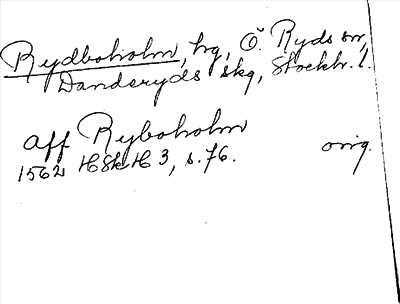 Rydboholm, hg, Ö. Ryds sn,
Danderyds skg, Stockh. l.
aff Ryboholm
1562 HSkH 3, s. 76. orig.